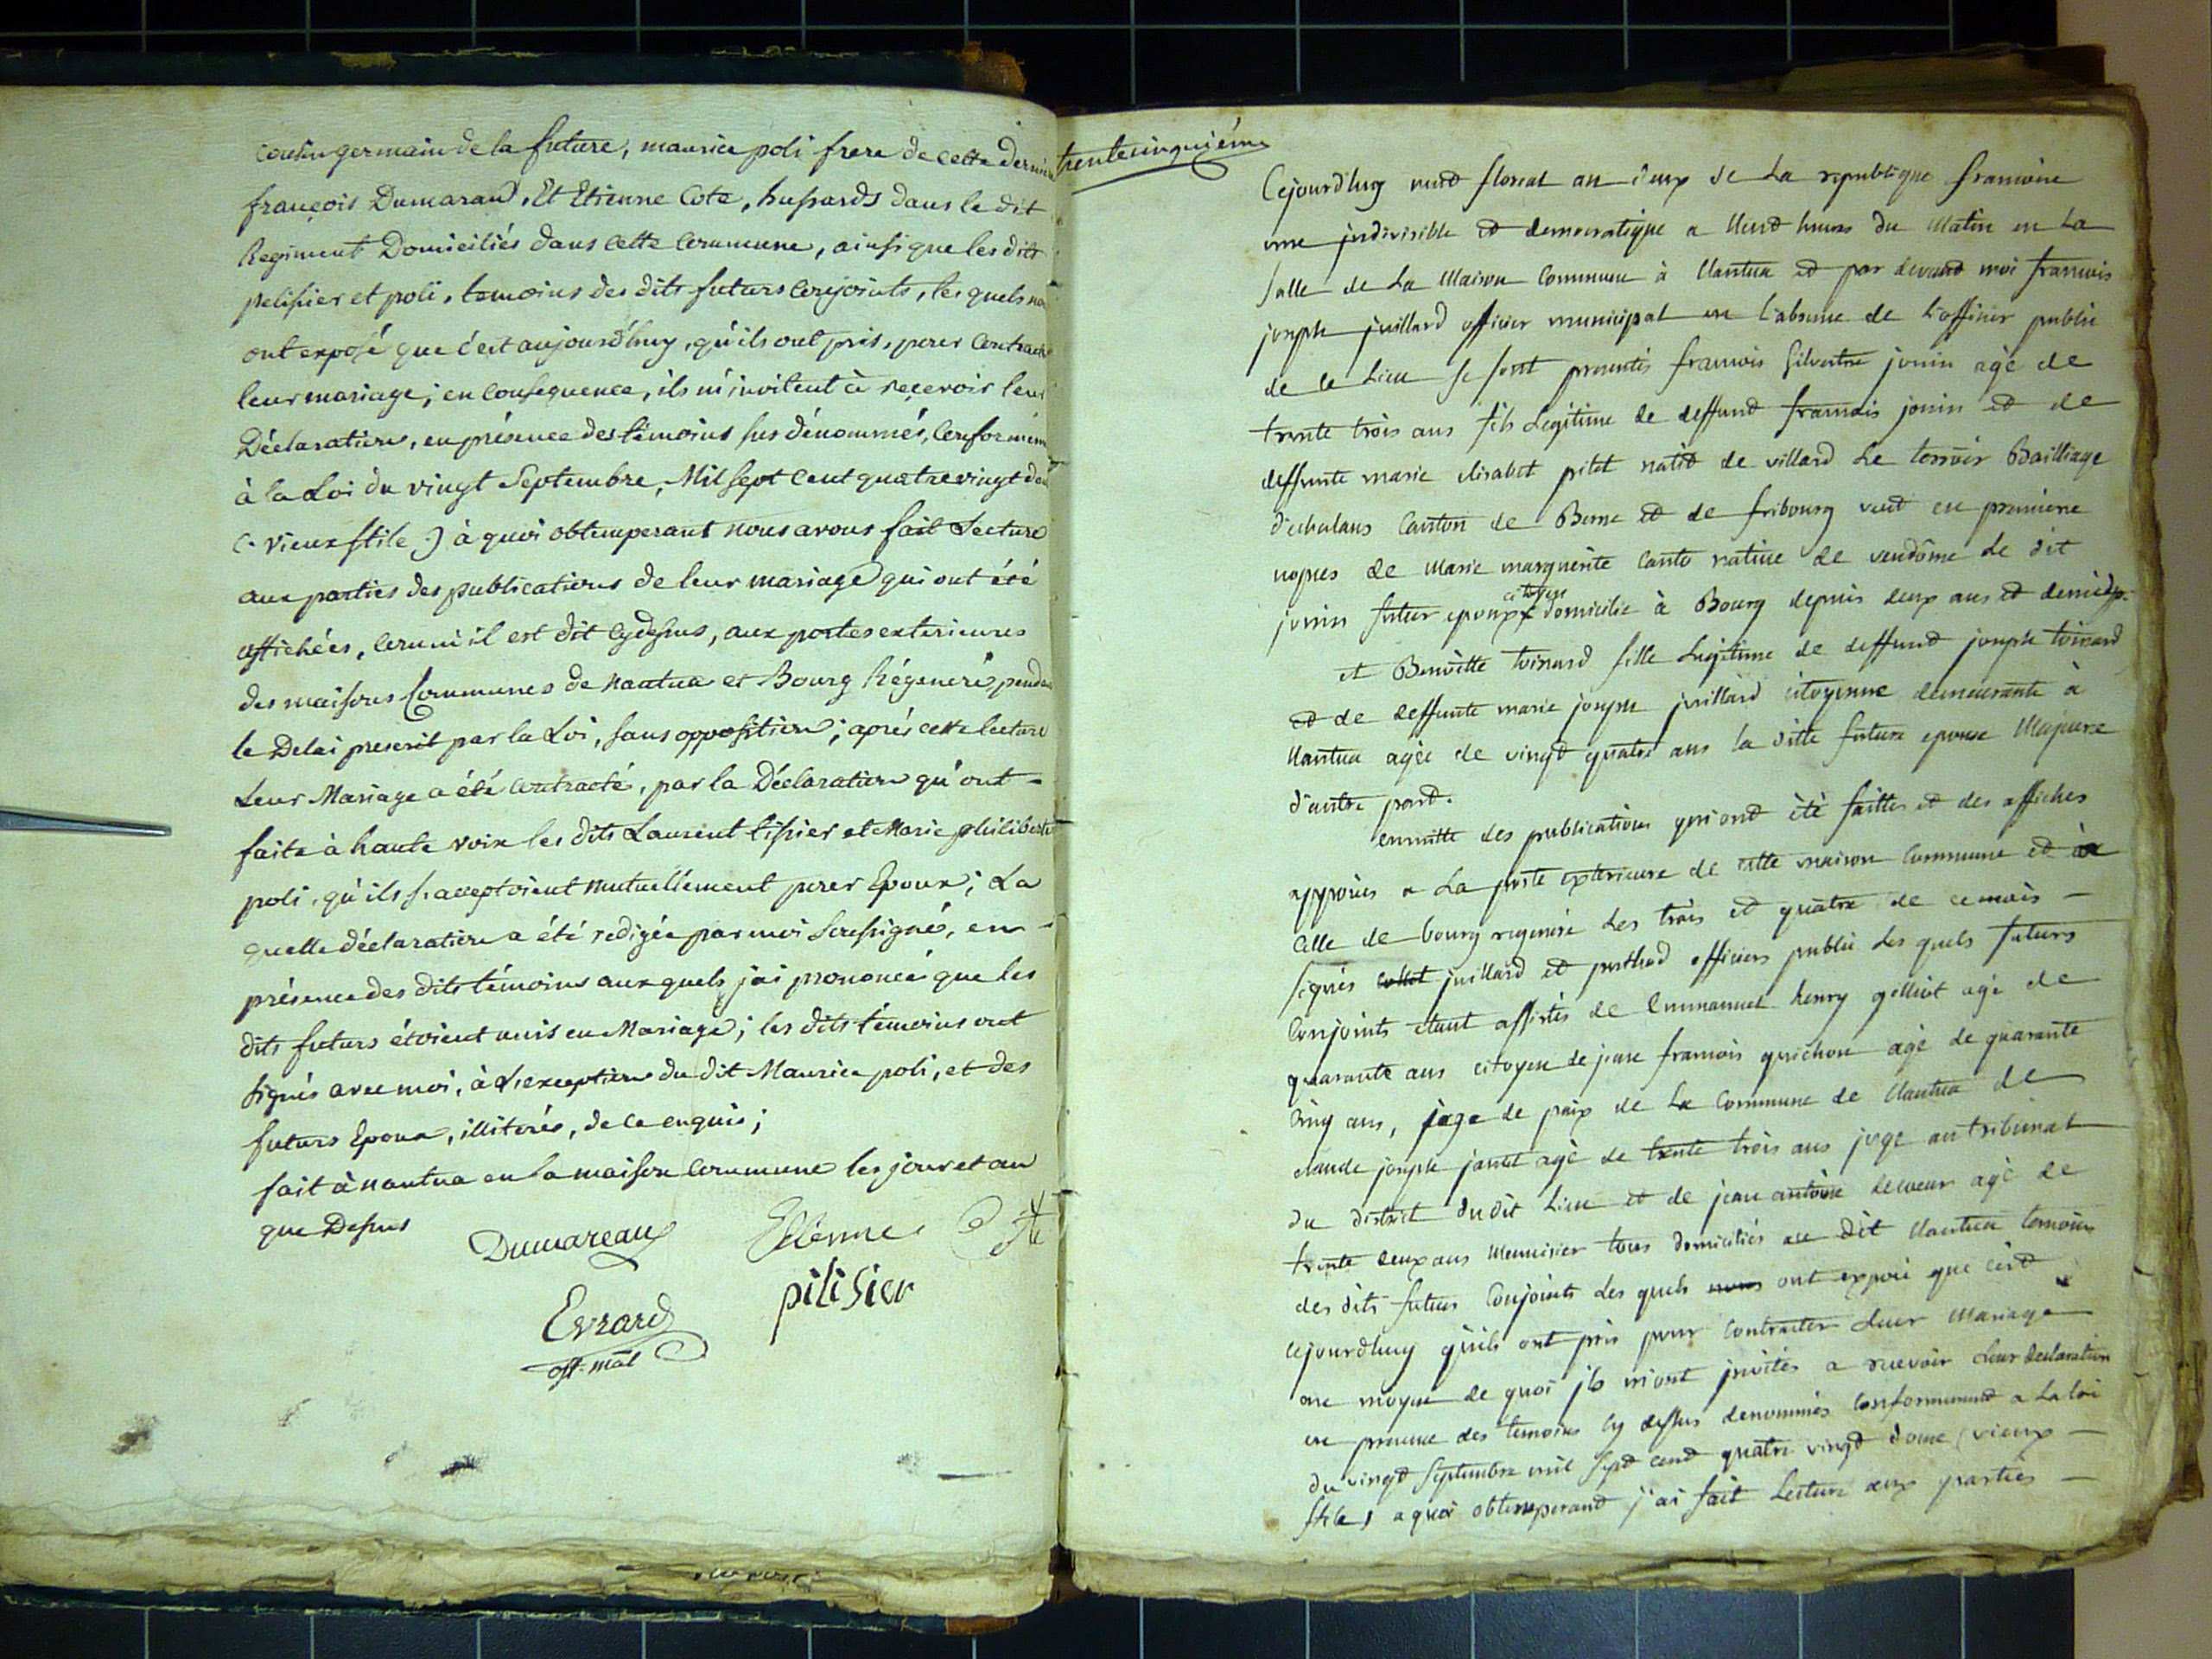 cousin germain de la future, maurice poli frere de cette derniere
françois Dumaraud, Et Etienne Cote, hussards dans le dit
Regiment Domiciliés dans cette Commune, ainsi que les dits
pelissier et poli, temoins des dits futurs Conjoints, les quels
ont exposé que c'est aujourd'huy, qu'ils ont pris, pour Contracter
leur mariage; en Consequence, ils m'invitent à recevoir leur
Déclaration, en présence des témoins sus dénommés, Conformém
à la Loi du vingt Septembre, Mil sept Cent quatre vingt
(. vieux stile .) à quoi obtemperant nous avons fait Lecture
aux parties des publications de leur mariage qui ont été
affichées, comm'il est dit cydessus, aux portes exterieures
des maisons Communes de nantua et Bourg Régénéré, pendant
le Delai prescrit par la Loi, sans opposition; aprés cette lecture
Leur Mariage a été contracté, par la Déclaration qu'ont
faite à haute voix les dits Laurent tissier et Marie philiberte
poli, qu'ils s'acceptoient mutuellement pour Epoux; La
quelle déclaration a été redigée par moi soussigné, en
présence des dits témoins aux quels j'ai prononcé que les
dits futurs étoient unis en Mariage; les dits témoins ont
signés avec moi, à L'exception du dit Maurice poli, et des
futurs Epoux, illiterés, de ce enquis;
fait à nantua en la maison Commune les jour et an
que Dessus
Dumareau Etienne Cote
Evrard pilisier
off. mal
trentecinquiéme
Cejourdhuy neuf floreal an deux de La republique francoise
une jndivisible et democratique a neuf heures du Matin en La
salle de La Maison Commune à Nantua et par devant moi francois
joseph juillard officier municipal en L'absence de L'officier public
de ce Lieu se sont presentés francois Silvestre jonin agé de
trente trois ans fils Legitime de deffunt francois jonin et de
deffunte marie elisabet pitet natif de villard Le terroir Bailliage
d'echalans Canton de Berne et de fribourg veuf en premiere
nopces de Marie marguerite Canto native de vendôme Le dit
jonin futur epoux citoyen domicilié à Bourg depuis deux ans et demi
et Benoitte toinard fille Legitime de deffunt joseph toinard
et de deffunte marie joseph juillard citoyenne demeurante à
Nantua agée de vingt quatre ans la ditte future epouse Majeure
d'autre part.
ensuitte des publications qui ont été faittes et des affiches
apposées a La porte exterieure de cette maison Commune et à
Celle de bourg regeneré Les trois et quatre de ce mois
signés juillard et officiers public Les quels futurs
Conjoints etant assistés de Emmanuel henry agé de
quarante ans citoyen de jean francois guichon agé de quarante
Cinq ans, juge de paix de La Commune de Nantua de
claude joseph jantet agé de trente trois ans juge au tribunal
du district dudit Lieu et de jean antoine agé de
trente deux ans Menuisier tous domiciliés au dit Nantua temoins
des dits futurs Conjoints Les quels nous ont exposé que c'est
cejourdhuy qu'ils ont pris pour Contracter Leur Mariage
au moyen de quoi jls m'ont jnvités a recevoir Leur declaration
en presence des temoins cy dessus denommés Conformement a La loi
du vingt septembre mil sept cent quatre vingt douze (vieux
stile) a quoi obtemperant j'ai fait Lecture aux parties